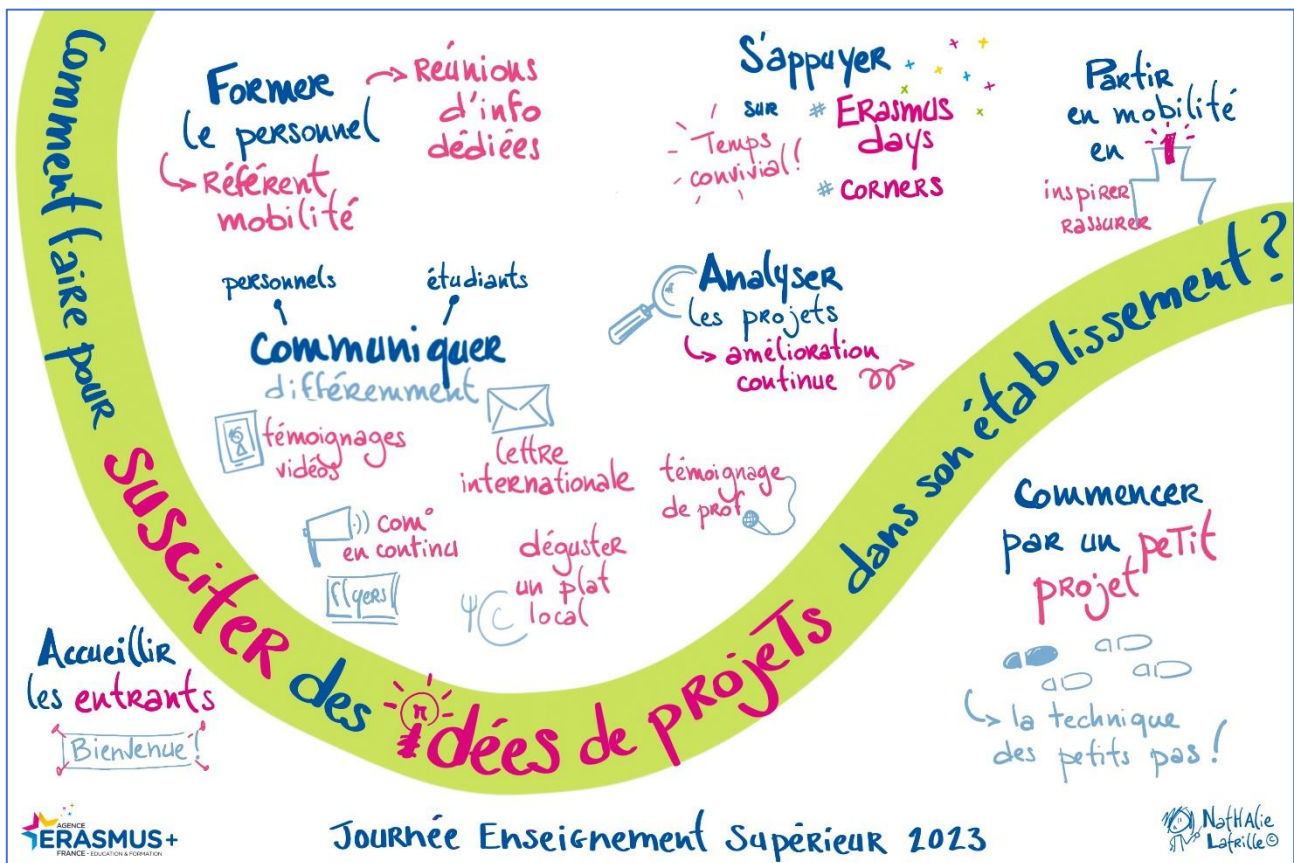 Comment faire pour susciter des idées de projets dans son établissement?
Former
le personnel
Référent
mobilité
Réunions
d'info
dédiées
S'appuyer
sur
# Erasmus
days
# corners
Temps
convivial!
Partir
en mobilité
en 1
inspirer
rassurer
personnels
étudiants
Communiquer
différemment
témoignages
vidéos
lettre
internationale
com° en continu
flyers
déguster
un plat
local
témoignage
de prof
Analyser
les projets
amélioration
continue
Commencer
par un petit
projet
la technique
des petits pas!
Accueillir
les entrants
Bienvenue!
AGENCE
ERASMUS+
FRANCE - EDUCATION & FORMATION
Journée Enseignement Supérieur 2023
Nathalie
Latrille©